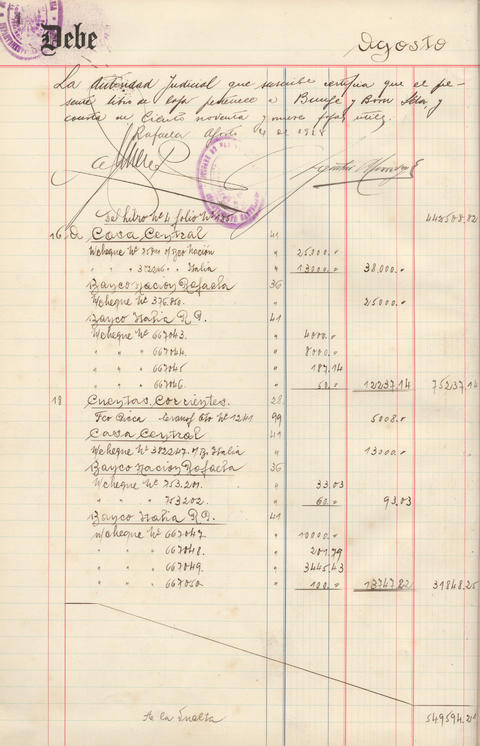 Debe
Agosto
La Autoridad Judicial que suscribe certifica que el pre-
sente libro de Caja pertenece a Bunge y Born Ltda y
consta de Ciento noventa y nueve fojas útiles.
Rafaela Agosto de
Del libro Nº 4 folio Nº 442508.82
16 a Casa Central 41
N/cheque Nº o/Bco Nación " 25000.-
" " " Italia " 13000.- 38000.-
Banco Nacion Rafaela 36
N/cheque Nº 376050. " 25000.-
Banco Italia R.P. 41
N/cheque Nº 667043. " 4000.-
" " " 667044. " 8000.-
" " " 667045 " 187.14
" " " 667046. " 50.- 12237.14 75237.14
18 Cuentas Corrientes. 28
Fco Cto Nº 1241. 99 5008.-
Casa Central 41
N/cheque Nº 382247. o/B. Italia " 13000.-
Banco Nacion Rafaela 36
N/cheque Nº 753.201. " 33.03
" " " 753202. " 60.- 93.03
Banco Italia R.P. 41
N/cheque Nº 667047. " 10000.-
" " " 667048. " 201.79
" " " 667049. " 3445.43
" " " 667050. " 100.- 13747.22 31848.25
A la Vuelta 549594.21